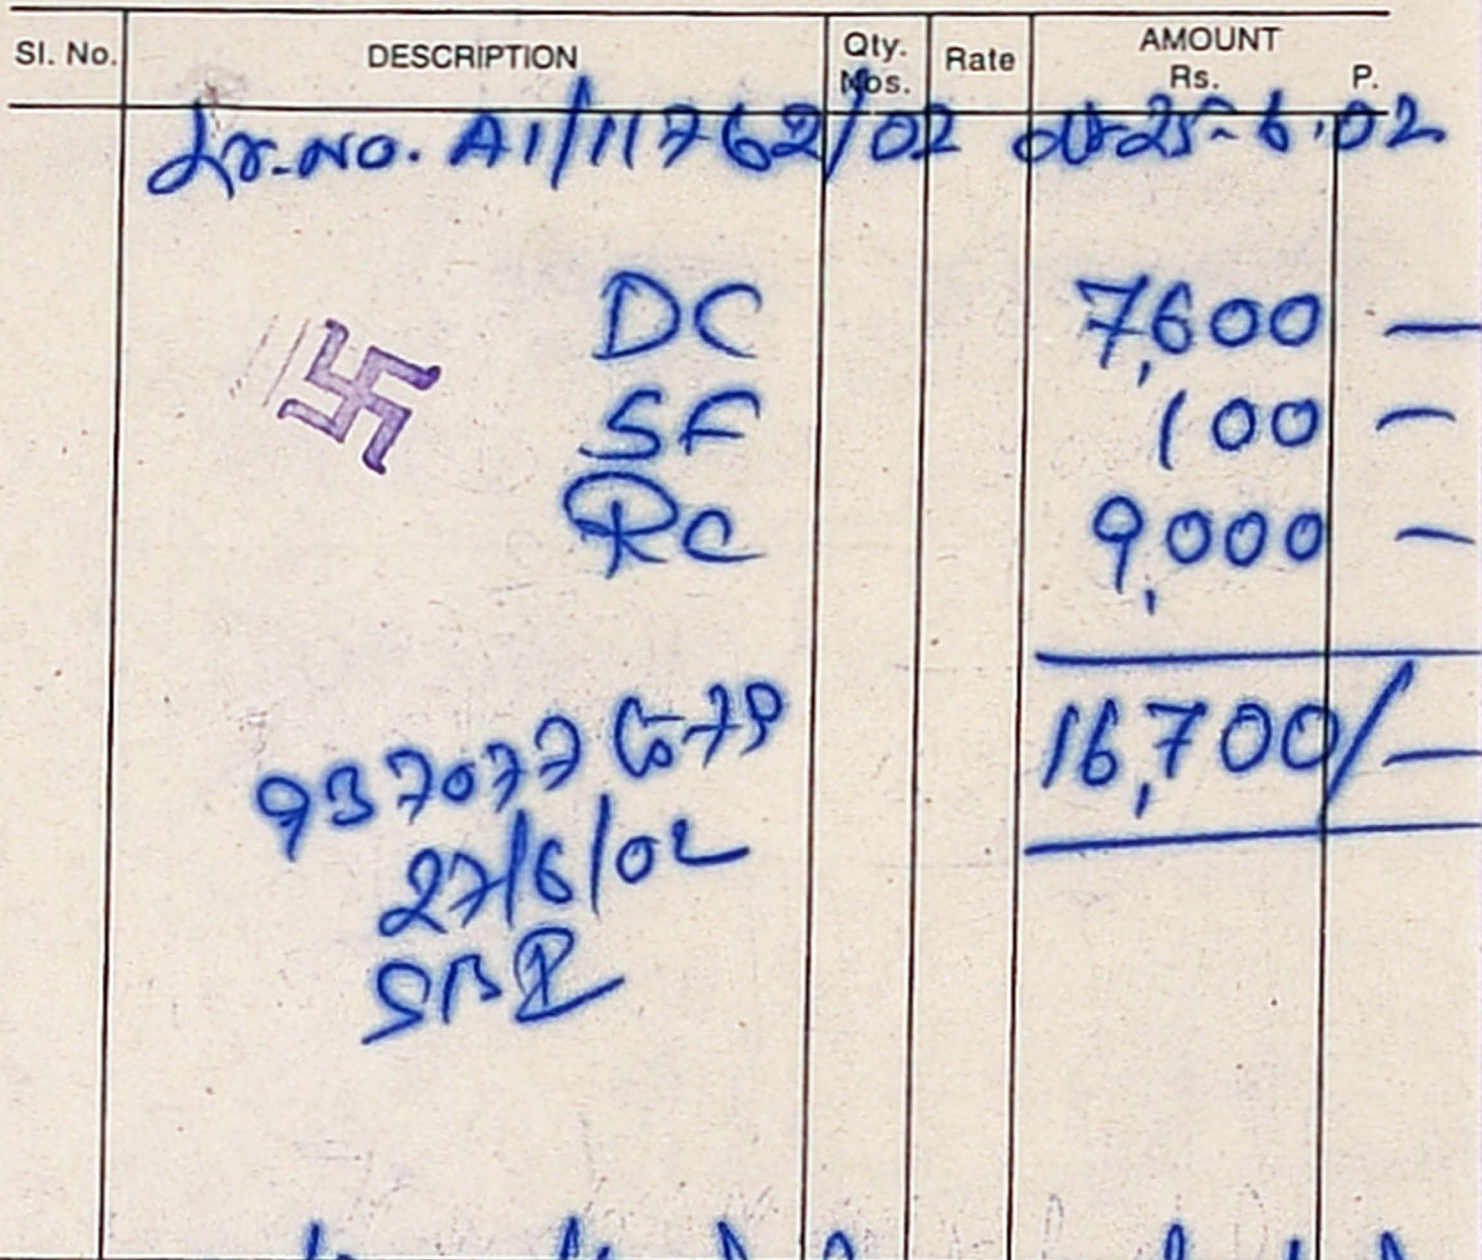 Sl. No. DESCRIPTION Qty. Nos. Rate AMOUNT Rs. P.
Lr. No. A1/11762/02 dt 25-6.02
DC 7,600 —
SF 100 —
RC 9,000 —
16,700/—
937077
27/6/02
SBI